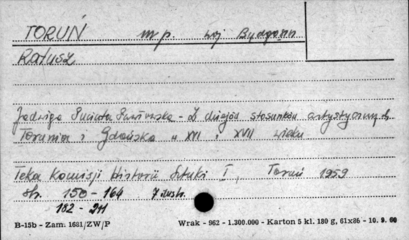 TORUŃ m.p. woj Bydgoszcz
Ratusz
Jadwiga Puciata Pawłowska - Z dziejów stosunków artystycznych
Torunia i Gdańska w XVI i XVII wieku
Teka Komisji Historii Sztuki I, Toruń 1959
str. 150 - 164 7 ilustr.
182 - 211
B-15b - Zam. 1681/ZW/P Wrak - 962 - 1.300.000 - Karton 5 kl. 180 g, 61x86 - 10. 9. 60